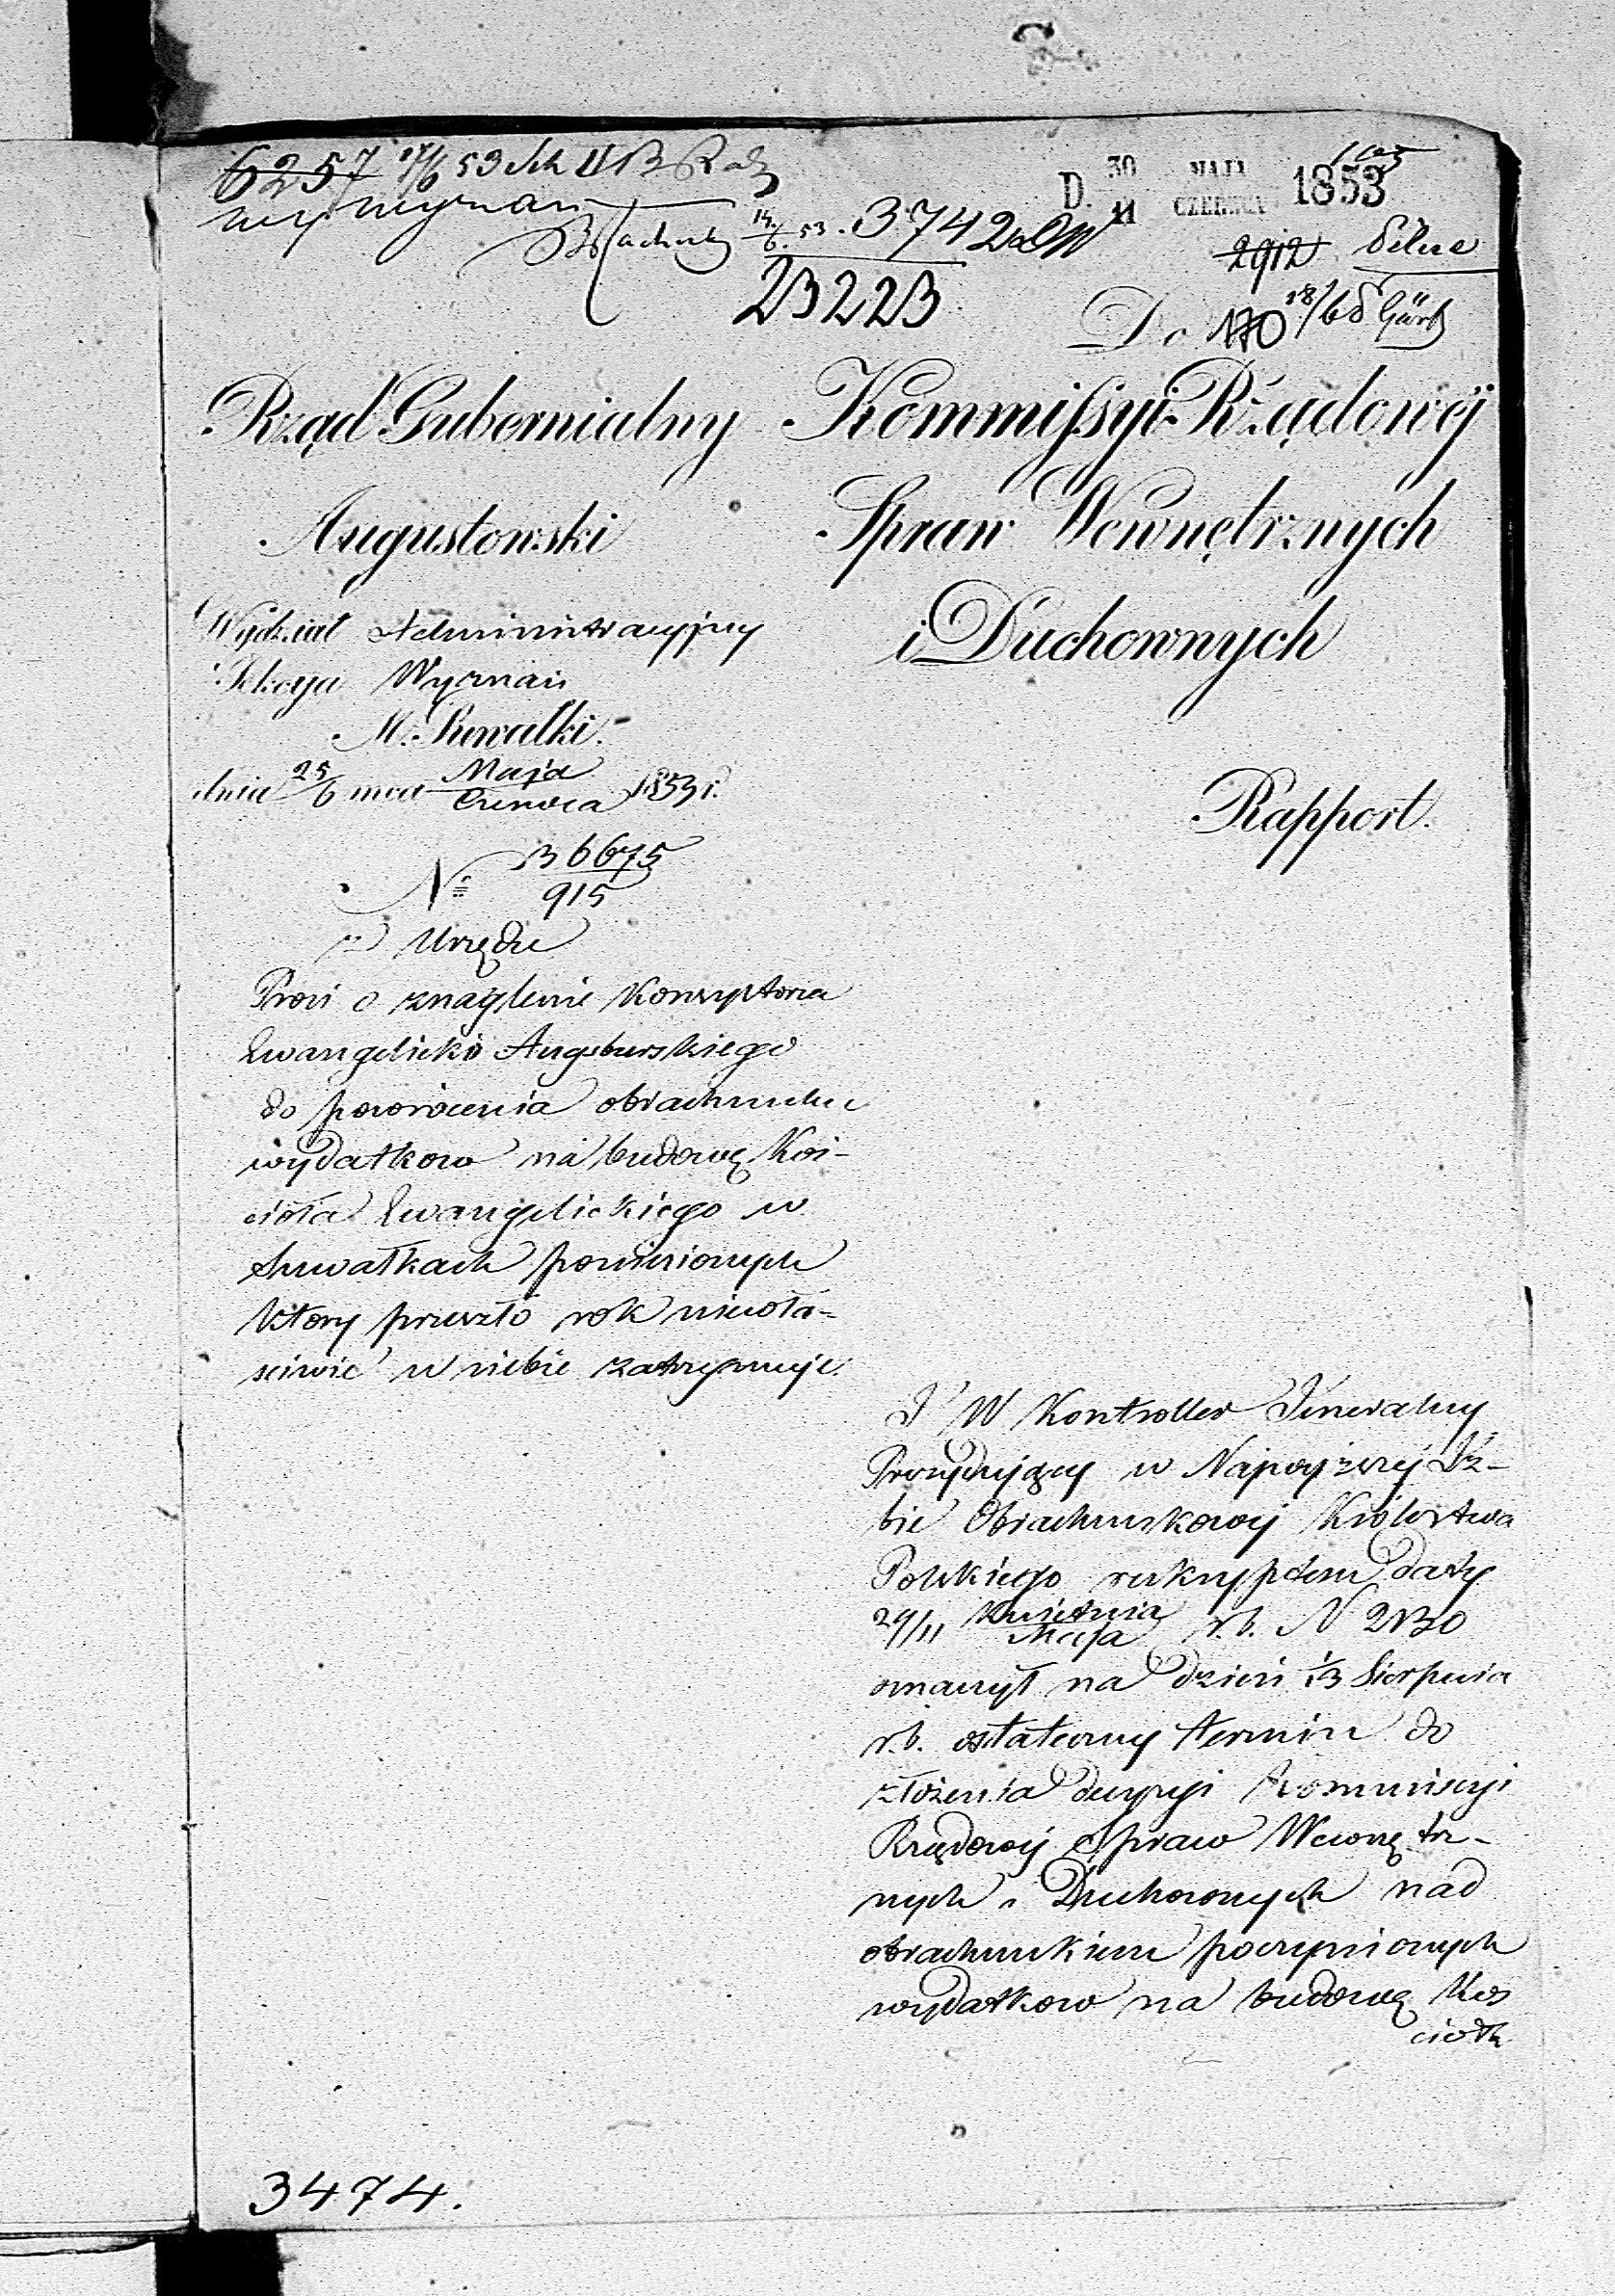 6257 17/6 53 Sek II B Rad
wyż wyznań
Rachub 14/6 53. 3742
23223
D. 30 MAJA
11 CZERWCA 1853
2912
Do 170 18/6
Rząd Gubernialny
Augustowski
Wydział Administracyjny
Sekcya Wyznań
M. Suwałki.
dnia 25/6 mca Maja/Czerwca 1853 r.
N° 36675/915
z Urzędu
Prosi o znaglenie Konsystorza
Ewangelicko Augsburskiego
do powrócenia obrachunku
wydatkow na budowę Koś-
cioła Ewangelickiego w
Suwałkach poniesionych
ktory przeszło rok niewła-
sciwie u siebie zatrzymuje.
Kommissyi Rządowéj
Spraw Wewnętrznych
i Duchownych
Rapport.
J W Kontroller Jeneralny
Prezydujący w Najwyższej Iz-
bie Obrachunkowej Królestwa
Polskiego reskryptem daty
29/11 Kwietnia/Maja r.b. N 2130
oznaczył na dzień 1/13 Sierpnia
r.b. ostateczny termin do
złożenia decyzyi Kommissyi
Rządowej Spraw Wewnętrz-
nych i Duchownych nad
obrachunkiem poczynionych
wydatkow na budowę Koś
cioła
3474.